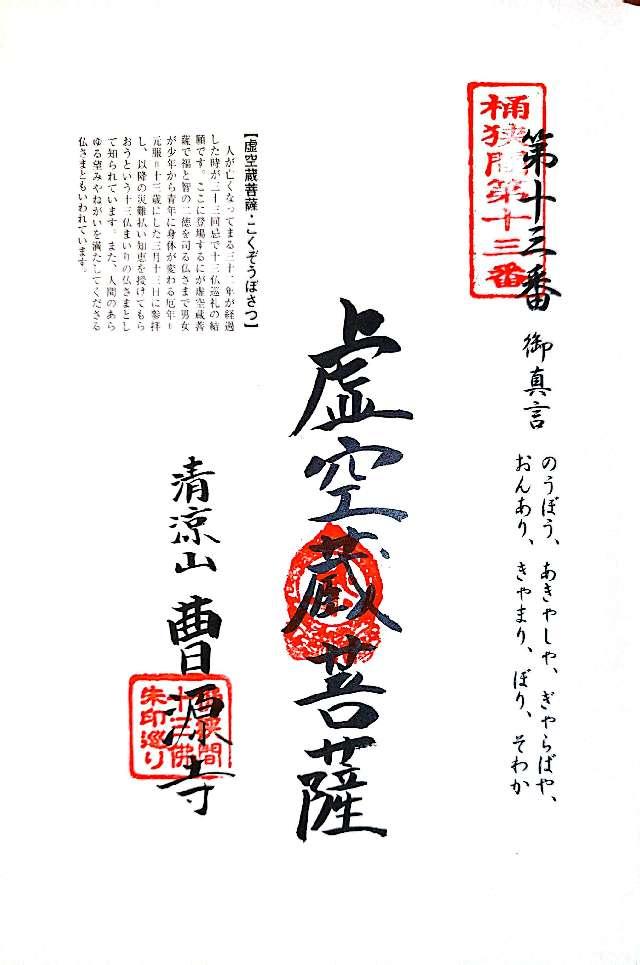 桶狭間第十三番
第十三番 御真言
のうぼう、あきゃしゃ、ぎゃらばや、
おんあり、きゃまり、ぼり、そわか
虚空蔵菩薩
【虚空蔵菩薩・こくぞうぼさつ】
人が亡くなってまる三十二年が経過
した時が三十三回忌で十三仏巡礼の結
願です。ここに登場するにが虚空蔵菩
薩で福と智の二徳を司る仏さまで男女
が少年から青年に身体が変わる厄年＝
元服＝十三歳にした三月十三日に参拝
し、以降の災難払い知恵を授けてもら
おうという十三仏まいりの仏さまとし
て知られています。また、人間のあら
ゆる望みやねがいを満たしてくださる
仏さまともいわれています。
清涼山 曹源寺
桶狭間
十三佛
朱印巡り